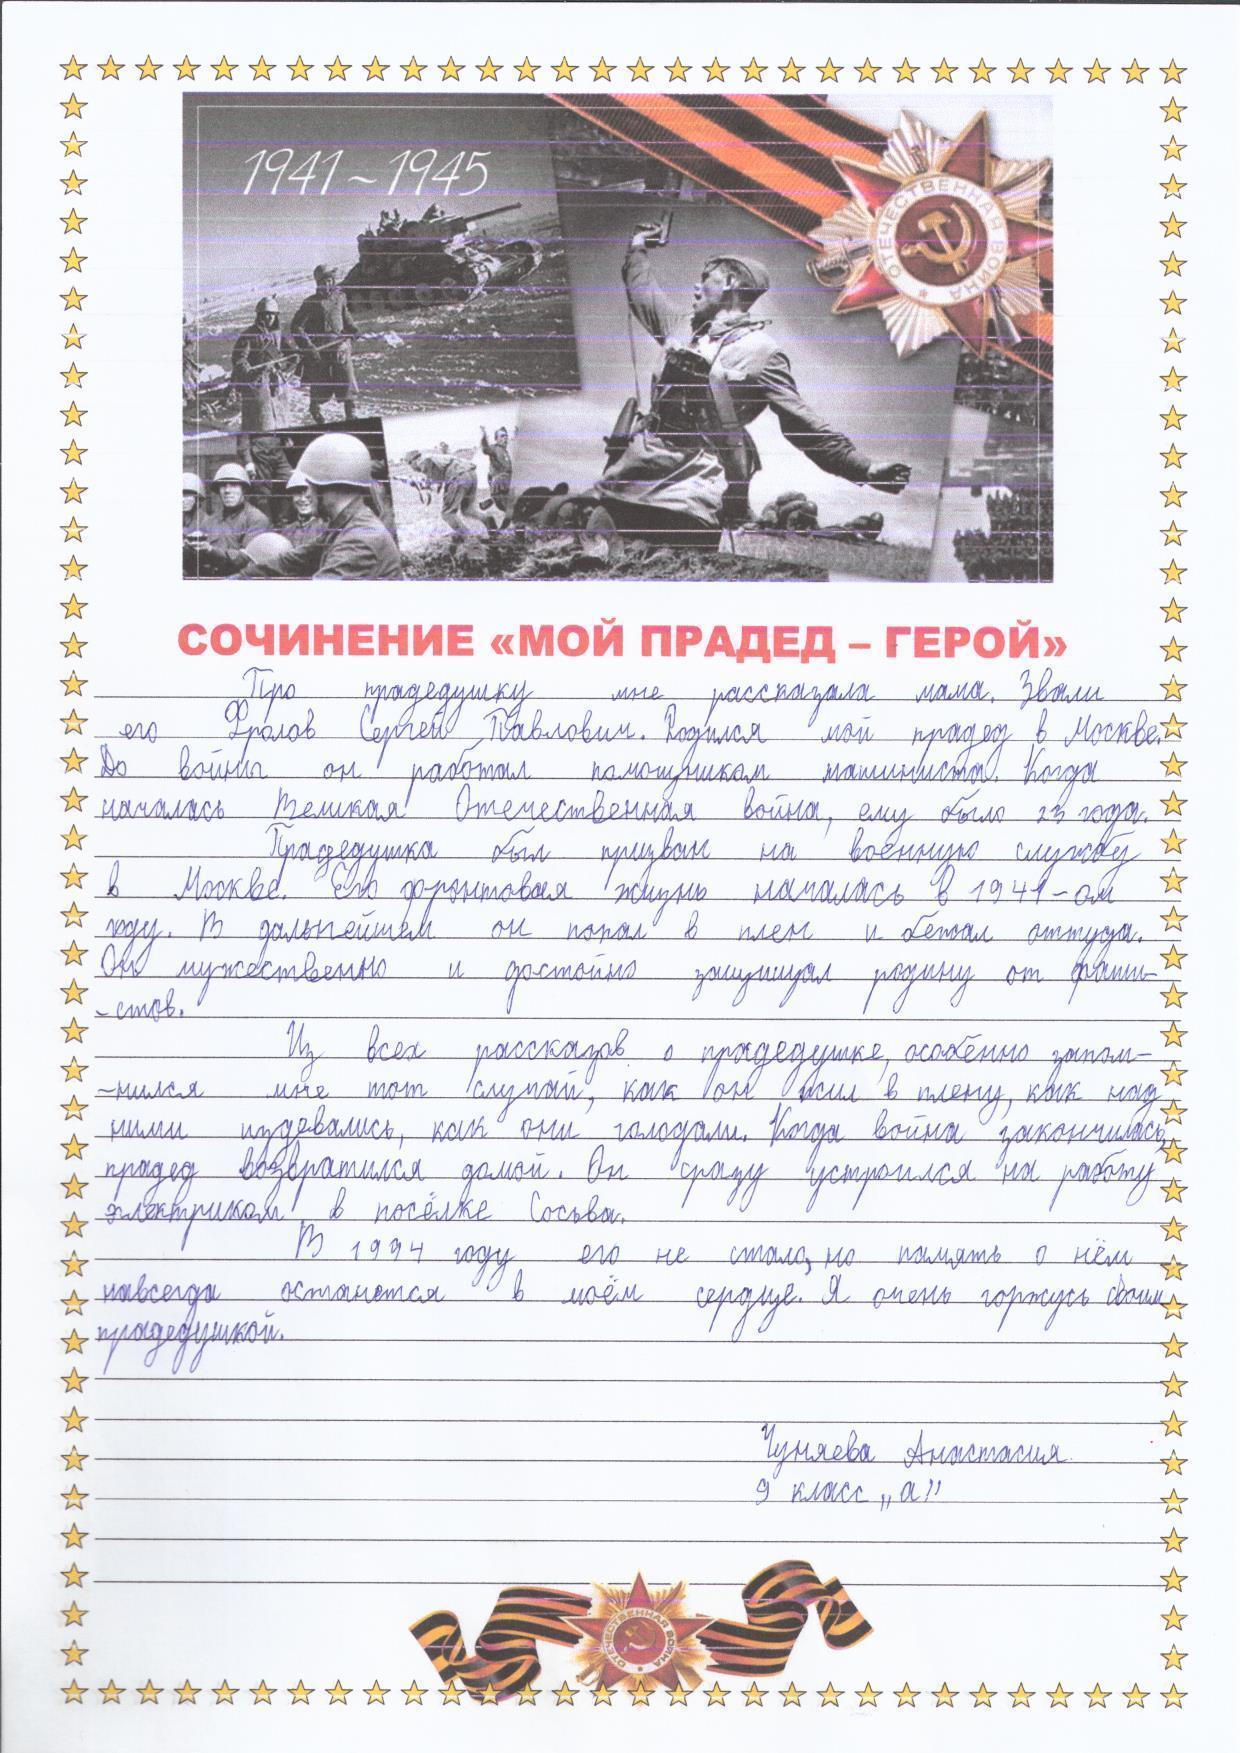 1941-1945
ОТЕЧЕСТВЕННАЯ ВОЙНА
СОЧИНЕНИЕ «МОЙ ПРАДЕД – ГЕРОЙ»
Про прадедушку мне рассказала мама. Звали
его Фролов Сергей Павлович. Родился мой прадед в Москве.
До войны он работал помощником машиниста. Когда
началась Великая Отечественная война, ему было 23 года.
Прадедушка был призван на военную службу
в Москве. Его фронтовая жизнь началась в 1941-ом
году. В дальнейшем он попал в плен и бежал оттуда.
Он мужественно и достойно защищал родину от фаши-
-стов.
Из всех рассказов о прадедушке, особенно запом-
-нился мне тот случай, как он жил в плену, как над
ними издевались, как они голодали. Когда война закончилась,
прадед возвратился домой. Он сразу устроился на работу
электриком в посёлке Сосьва.
В 1994 году его не стало, но память о нём
навсегда останется в моём сердце. Я очень горжусь своим
прадедушкой.
Чуняева Анастасия
9 класс „а"
ОТЕЧЕСТВЕННАЯ ВОЙНА